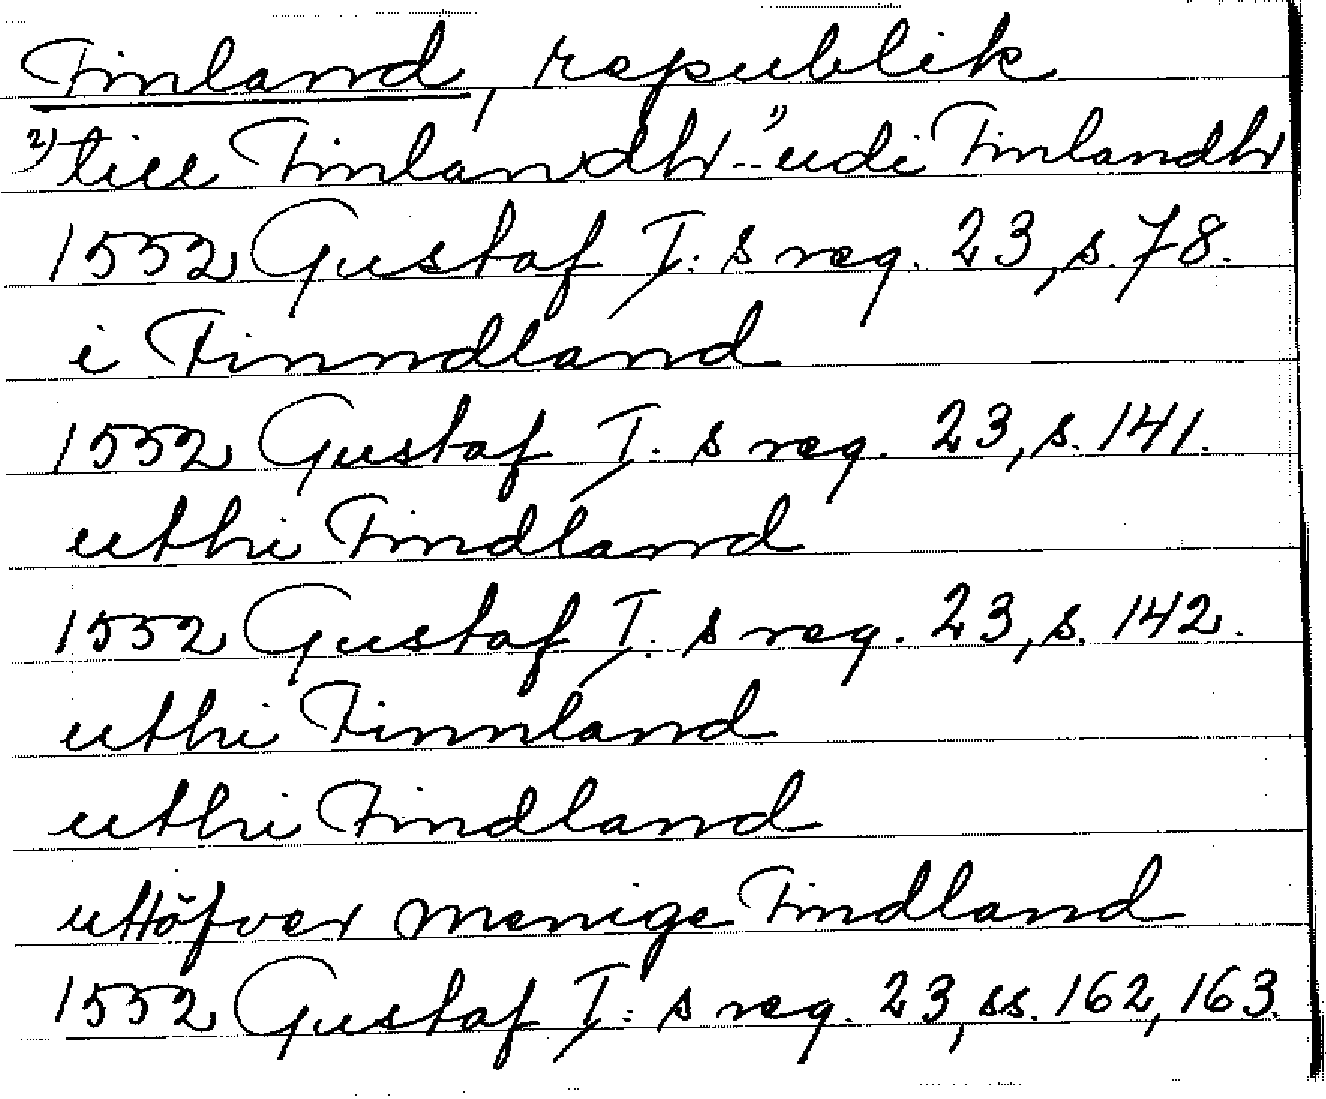 Finland, republik
2) till Finlandh - 1) udi Finlandh
1552 Gustaf I: s reg. 23, s. 78.
i Finndland
1552 Gustaf I. s reg. 23, s. 141.
uthi Findland
1552 Gustaf I. s reg. 23, s. 142.
uthi Finnland
uthi Findland
uttöfver menige Findland
1552 Gustaf I: s reg. 23, ss. 162, 163.